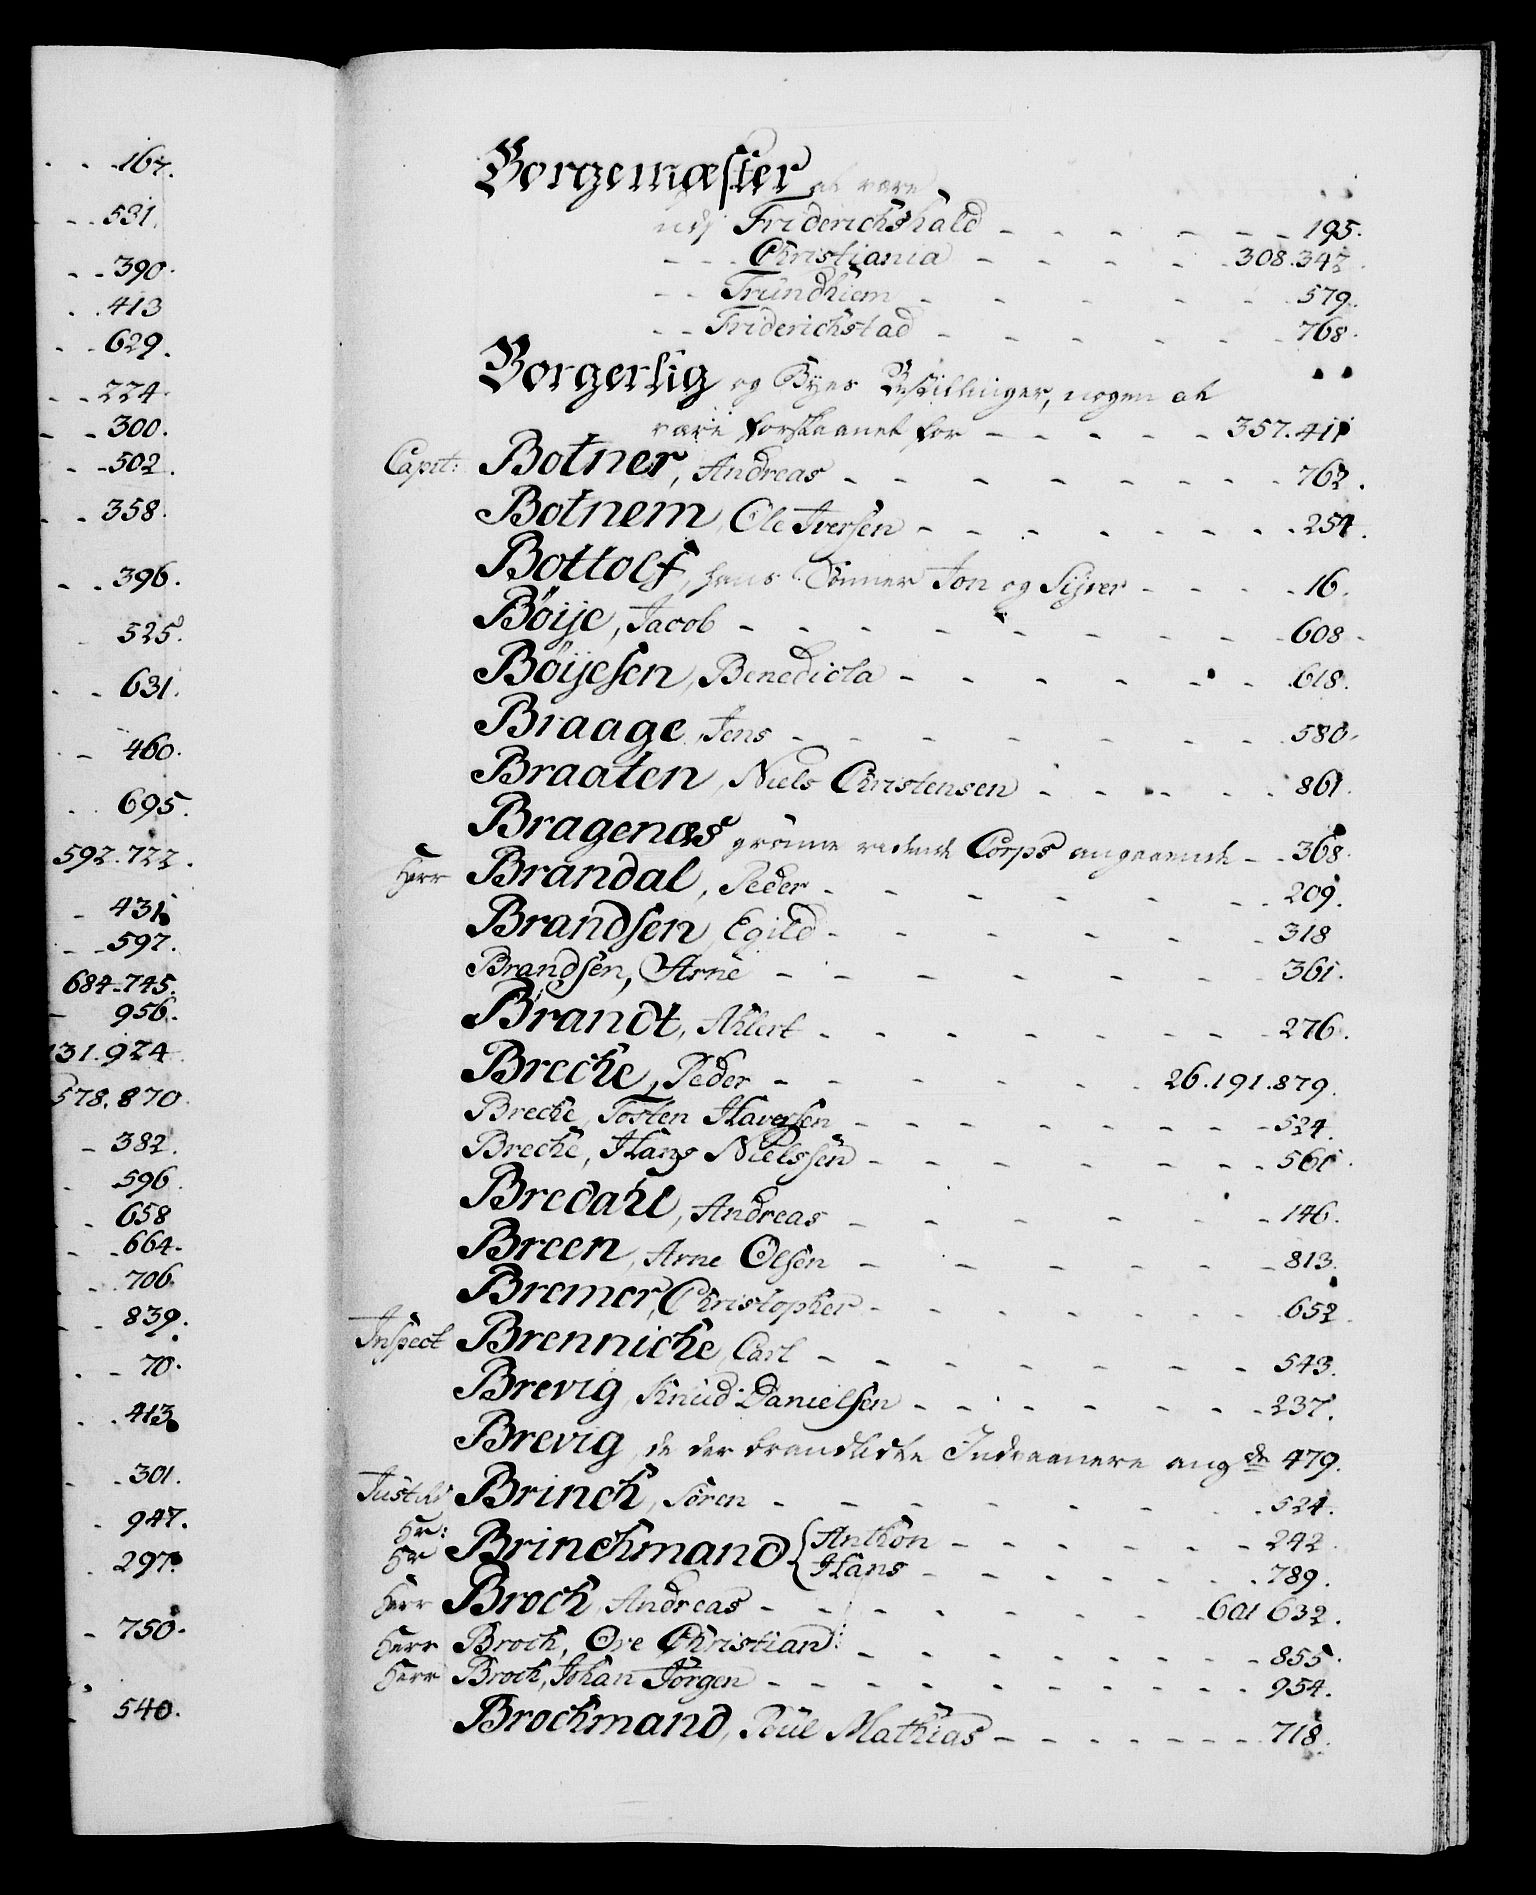 167.
531.
390.
413
629.
224.
300.
502.
358.
396.
525.
631.
460.
695.
592.722.
431
597.
684-745.
956.
31.924
578.870.
382.
596
658
664.
706
839.
70.
413
301.
947.
297.
750.
540.
Borgemæster at være
udj Friderichshald - - - - - - 195.
- - - Christiania - - - - 308.342.
- - Trundhiem - - - - - 579.
- - Friderichstad - - - - - 768.
Borgerlig og Byes Bestillinger, nogen at
være forskaanet for - - - - - 357.411
Capit: Botner, Andreas - - - - - - - - 762.
Botnem, Ole Iversen - - - - - - - - 254.
Bottolf, hans Sönner Jon og Sijver - - - - 16.
Böije, Jacob - - - - - - - - - 608.
Böijesen, Benedicta - - - - - - 618.
Braage, Jens - - - - - - - - 580.
Braaten, Niels Christensen - - - - - 861.
Bragenæs grönne ridende Corps angaaende - - 368.
Herr Brandal, Peder - - - - - - - 209.
Brandsen, Egild - - - - - - 318
Brandsen, Arne - - - - - - - 361.
Brandt, Ahlert - - - - - - - - 276.
Breche, Peder - - - - - - 26.191.879.
Breche, Tosten Haversen - - - - - - - - 524.
Breche, Hans Nielssen - - - - - - - 561.
Bredahl, Andreas - - - - - - 146.
Breen, Arne Olsen - - - - - - 813.
Bremer, Christopher - - - - - - - 652.
Inspect Brenniche, Carl - - - - - - - - 543.
Brevig, Knud Danielsen - - - - - - - 237.
Brevig, de der brandlidte Indvaanere ang de 479.
Justitz Brinch, Sören - - - - - - - 524.
Hr: Brinchmand { Anthon - - - - - - 242.
Hr Hans - - - - - - - 789.
Herr Broch, Andreas - - - - - - - 601 632.
Herr Broch, Ove Christian - - - - - - - - 855.
Herr Broch, Johan Jörgen - - - - - - - - - 954.
Brochmand, Poul Mathias - - - - - - - 718.